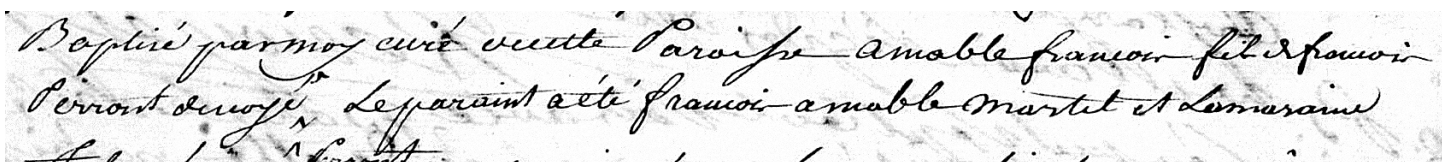 Baptisé par moy curé de cette Paroisse amable françois fils de françois
Perront Le paraint a été françois amable martel et La maraine